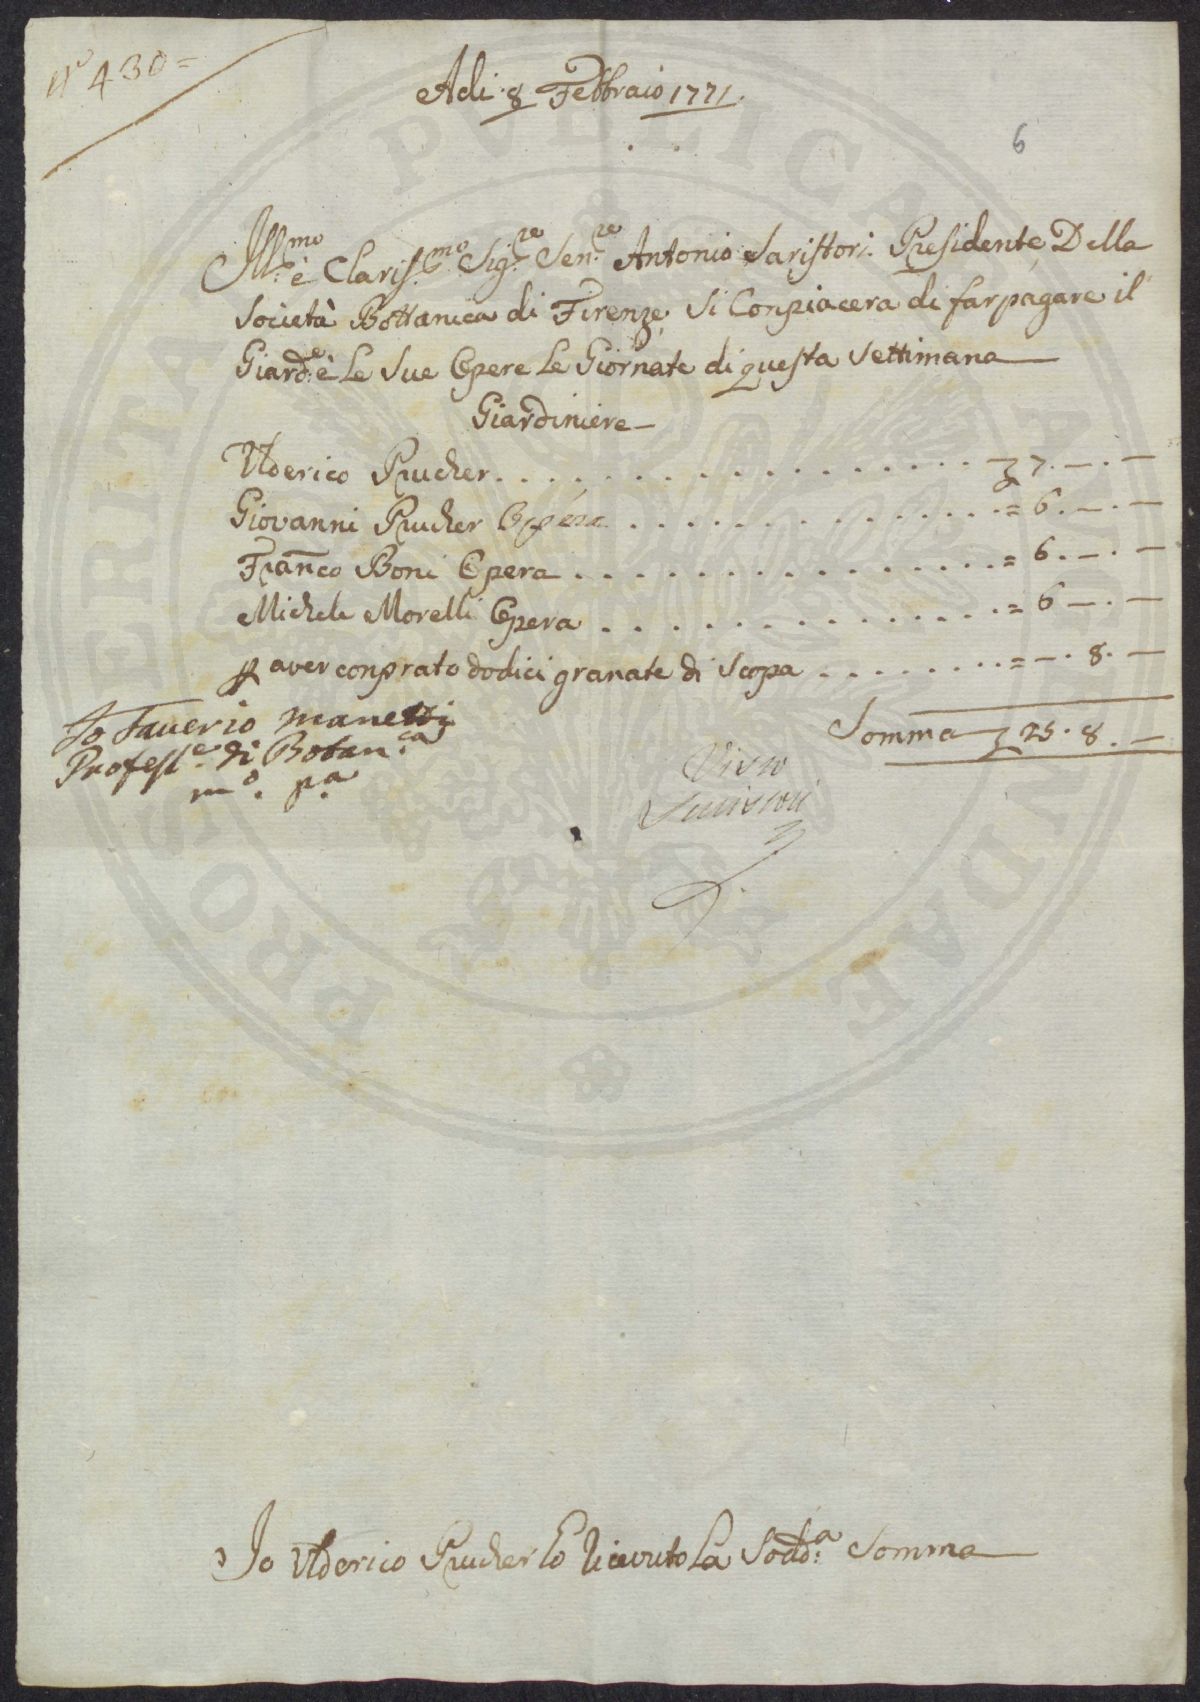 N° 430=
Adi 8 Febbraio 1771.
6
Ill.mo è Claris.mo Sig.re Sen.re Antonio Saristori Presidente Della
Società Bottanica di Firenze, Si Conpiacera di far pagare il
Giard.e è Le Sue Opere Le Giornate di questa Settimana
Giardiniere
Ulderico Prucher . . . . . . . . . . . . . . £ 7.—.—
Giovanni Prucher Opera . . . . . . . . . . . = 6.—.—
Franco Boni Opera . . . . . . . . . . . . = 6.—.—
Michele Morelli Opera . . . . . . . . . . . = 6—.—
p aver conprato dodici granate di Scopa . . . . . . . =—.8.—
Somma £ 25.8.—
Io Saverio Manetti
Profess.e di Botan.ca
m.o p.a
Visto
Io Ulderico Prucher ho Ricevuto La Sodd.a Somma
PROSPERITATI PUBLICAE AUGENDAE